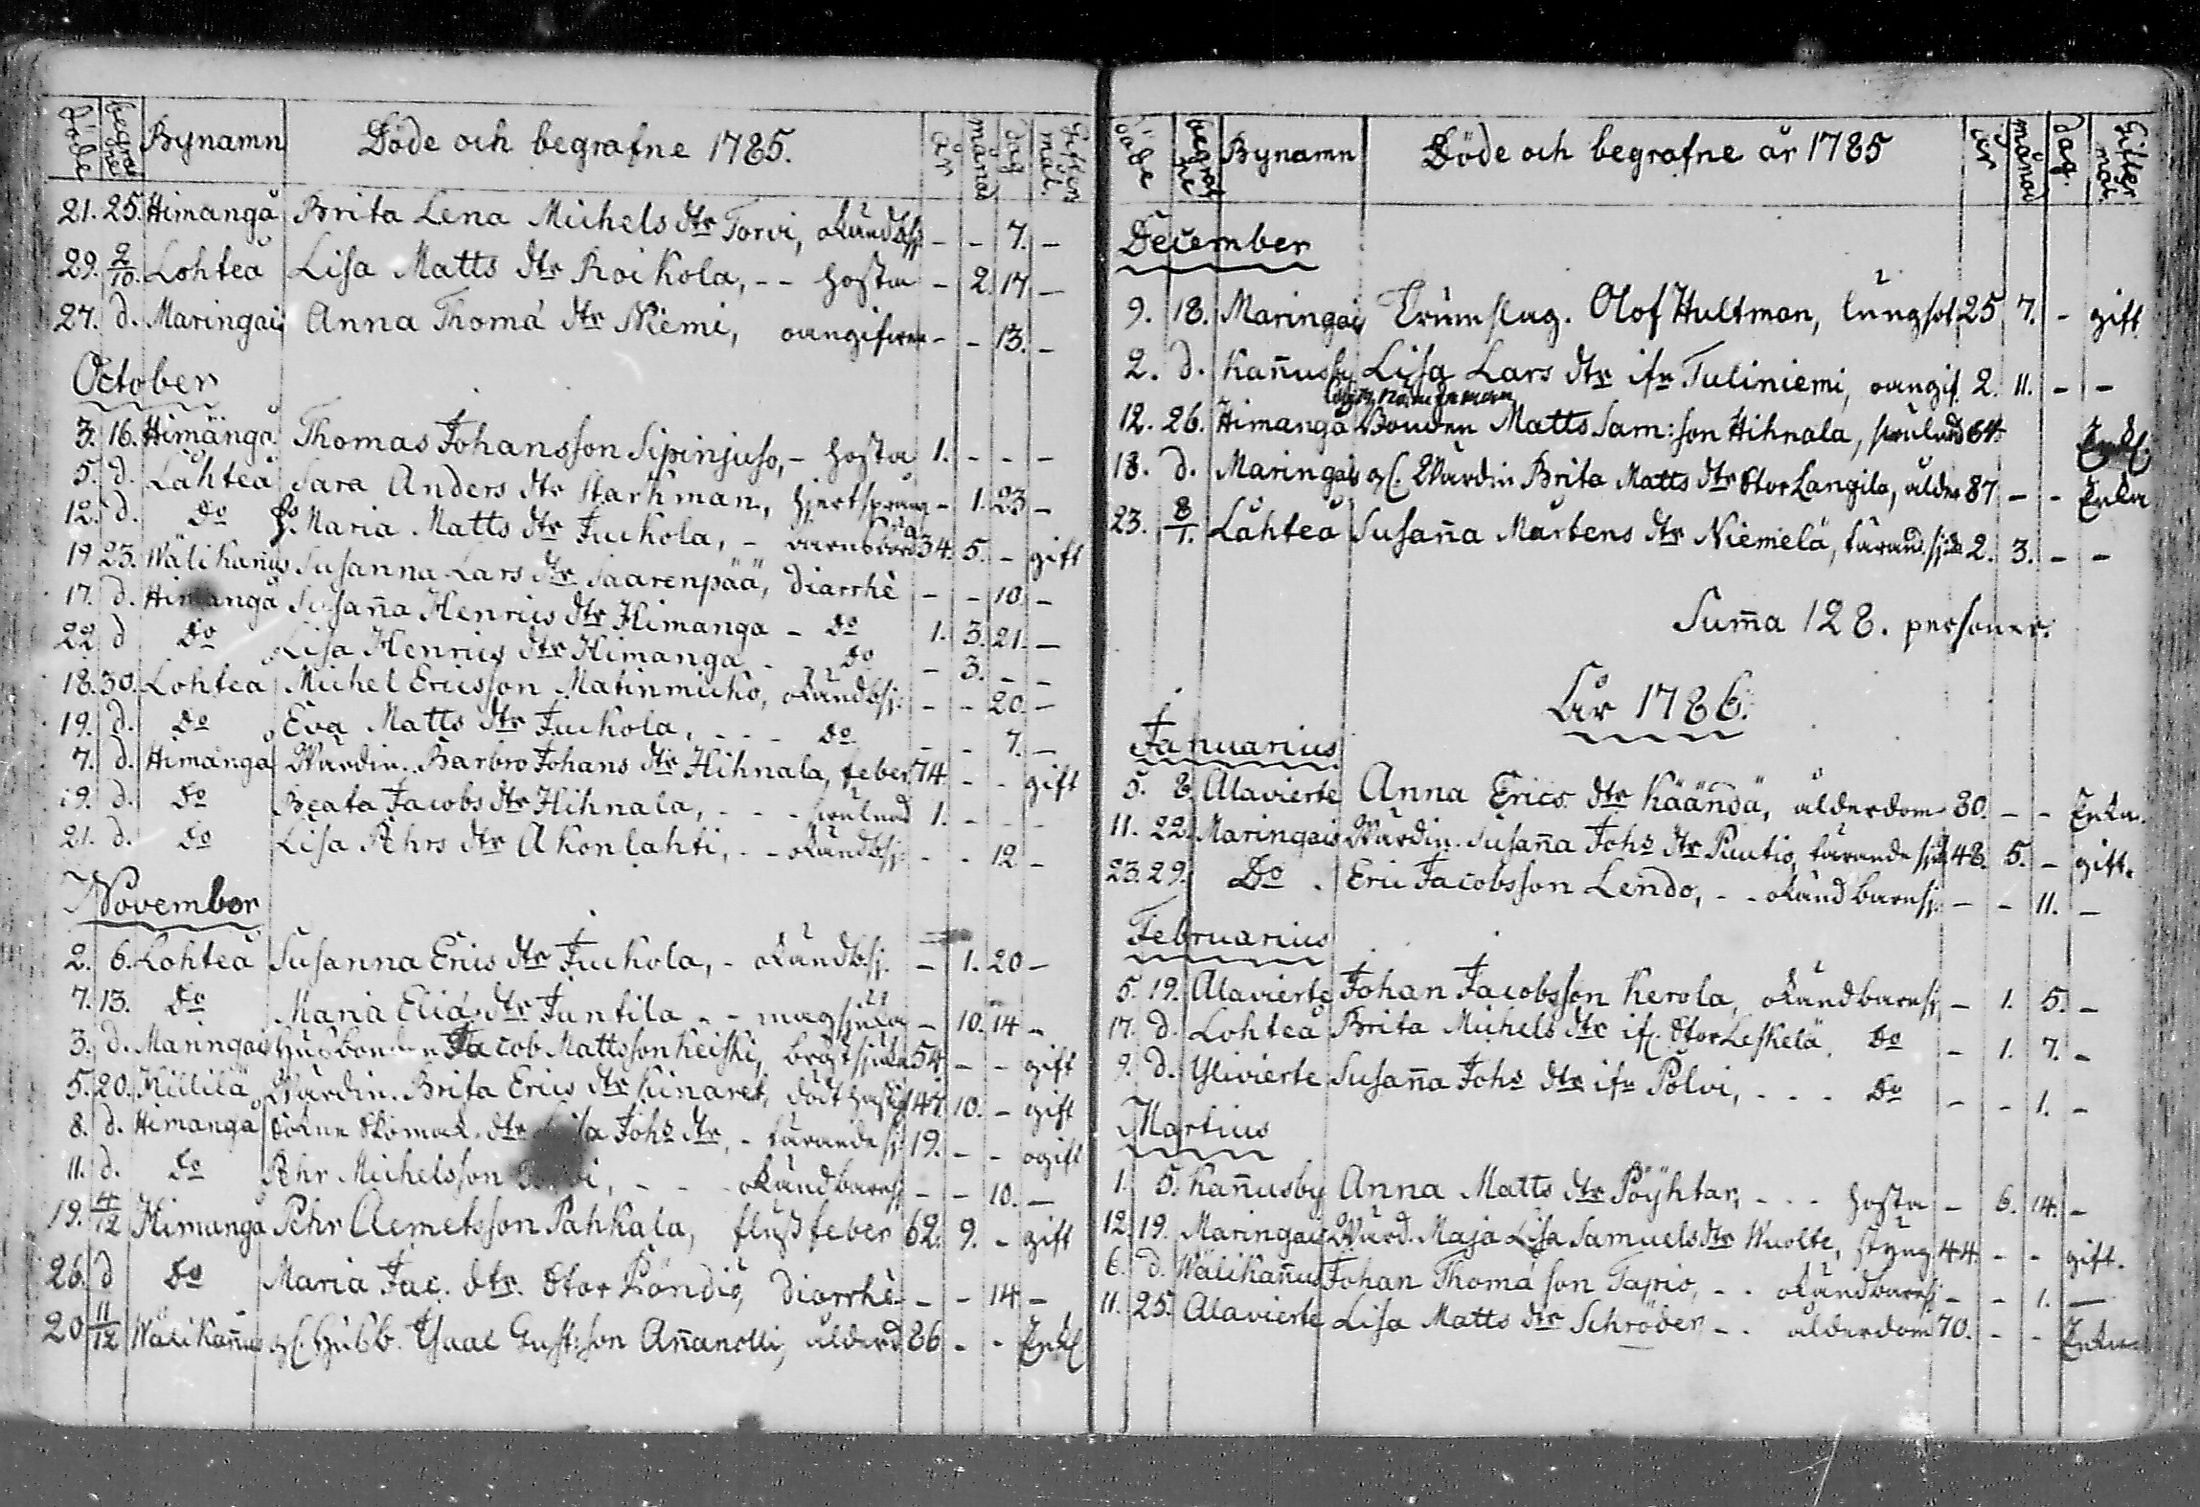 döde begrafne Bynamn Döde och begrafne 1785. år månad dag Giftermål.
21. 25. Himangå Brita Lena Michels dtr Torvi, okänd bsj. - - 7. -
29. 2/10. Lohteå Lisa Matts dtr Roikola, -- hosta - 2. 17. -
27. d. Maringais Anna Thomæ dtr Niemi, oangifven - - 13. -
October
3. 16. Himångå Thomas Johansson Sipinjuso, - hosta 1. - - -
5. d. Låhteå Sara Anders dtr Starkman, hjertsprång - 1. 23 -
12. d. Do H. Maria Matts dtr Juckola, - barnsbörd 34. 5. - gift
19 23. Wälikanus Susanna Lars dtr Saarenpää, Diarrhè - - 10. -
17. d. Himangå Susaña Henrics dtr Himanga - Do 1. 3. 21. -
22 d Do Lisa Henrics dtr Himanga - Do - 3. - -
18. 30. Lohteå Michel Ericsson Matinmicko, okänd bsj: - - 20. -
19. d. Do Eva Matts dtr Juckola, - - - Do - - 7. -
7. d. Himångå Wärdin. Barbro Johans dtr Hihnala, feber 74 - - gift
19. d. Do Beata Jacobs dtr Hihnala, - - - svulnad 1. - - -
21. d. Do Lisa Pehrs dtr Akonlahti, - - okänd bsj: - - 12 -
November
2. 6. Lohteå Susanna Erics dtr Juckola, - okänd b.sj. - 1. 20 -
7. 13. Do Maria Eliæ dtr Juntila - - magsjuka - 10. 14 -
3. d. Maringais Husbonden Jacob Mattsson Keiski, bröstsjuka 54 - - gift
5. 20. Killilä Wärdin. Brita Erics dtr Kinaret, 47. 10. - gift
8. d. Himangå Sokne Skomak. dtr Lisa Johs dtr, - tärande sj: 19. - - ogift
11. d. Do Pehr Michelsson Torvi, - - - okänd barnsj - - 10. -
19. 4/12 Himangå Pehr Clemetsson Pahkala, flussfeber 62. 9. - gift
26. d Do Maria Jac. dtr. Stor Pöndiö, Diarrhè - - 14 -
20 11/12 Wälikañus gl. Husb. Isaac Gust:son Añanolli, ålderd 86 - - Enkl
döde begrafne Bynamn Döde och begrafne år 1785 år månad dag. Giftermål.
December
9. 18. Maringais Trumslag. Olof Hultman, lungsot 25 7. - gift
2. d. Kañusby Lisa Lars dtr ifr Tuliniemi, oangif. 2. 11. - -
nämdeman
12. 26. Himangå Bonden Matts Sam:son Hihnala, svulnad 64.
18. d. Maringais gl. Wärdin Brita Matts dtr Stor Langila, ålder 87 - - Enka
23. 8/1. Låhteå Susaña Mårtens dtr Niemelä, tärand. sjuk 2. 3. - -
Suma 128. personer.
År 1786.
Januarius
5. 8. Alavierte Anna Erics dtr Käändä, ålderdom 80. - - Enka.
11. 22. Maringais Wärdin. Susaña Johs dtr Puutio, tärande sjuk 48. 5. - gift.
23. 29. Do. Eric Jacobsson Lendo, - - okänd barnsj: - - 11. -
Februarius
5. 19. Alavierte Johan Jacobsson Kerola, okänd barnsj. - 1. 5. -
17. d. Lohteå Brita Michels dtr if. Stor Leskelä. Do - 1. 7. -
9. d. Ylivierte Susaña Johs dtr ifr Pölvi, - - - Do - - 1. -
Martius
1. 5. Kañusby Anna Matts dtr Pöyhtar, - - - hosta - 6. 14. -
12. 19. Maringais Wärd. Maja Lisa Samuels dtr Wuolte, styng 44 - - gift.
6. d. Wälikañus Johan Thomæ son Tapio, - - okänd barnsj - - 1. -
11. 25. Alavierte Lisa Matts dtr Schroder - - ålderdom 70. - - Enka